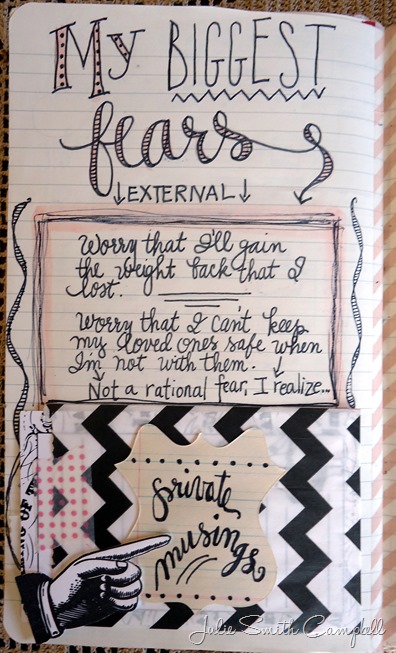 My BIGGEST
fears
EXTERNAL
Worry that I'll gain
the weight back that I
lost.
Worry that I can't keep
my loved ones safe when
I'm not with them.
Not a rational fear, I realize...
private
musings
Julie Smith Campbell